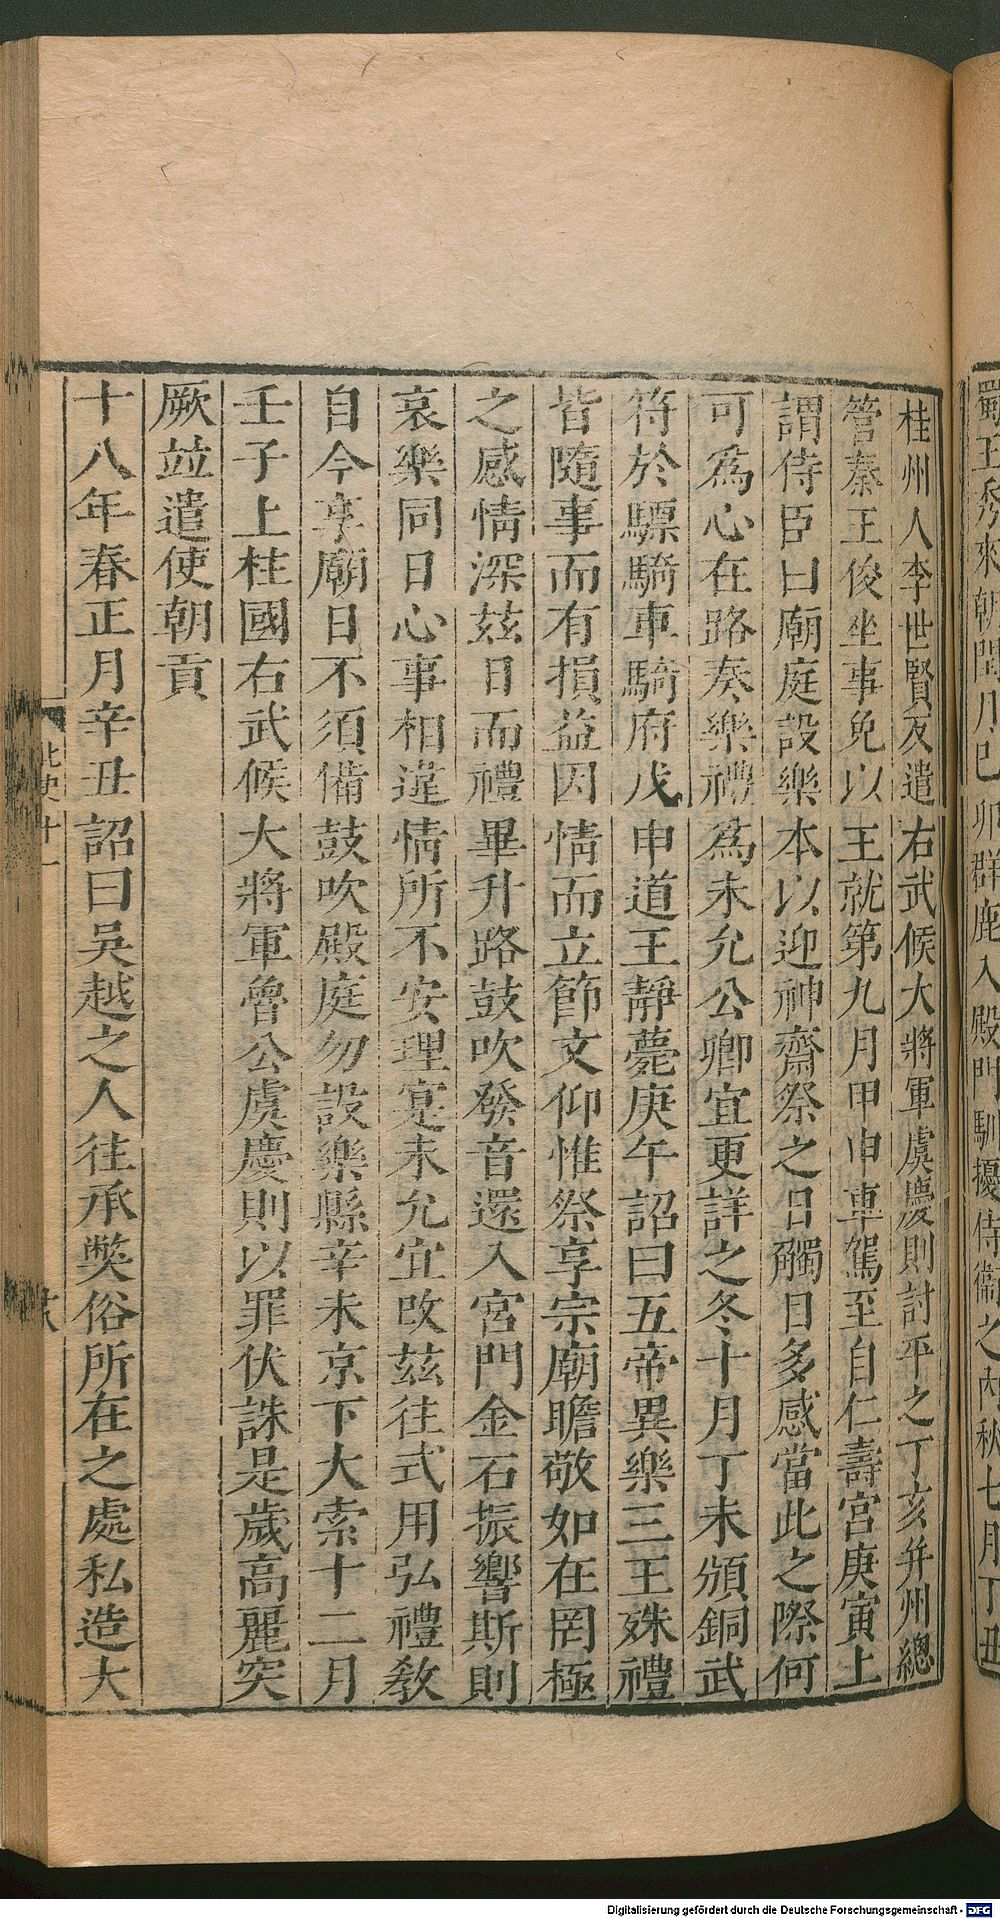 蜀王秀來朝閏月己卯群鹿入殿門馴擾侍衞之內秋七月丁丑
桂州人李世賢反遣右武候大將軍虞慶則討平之丁亥并州總
管秦王俊坐事免以王就第九月甲申車駕至自仁壽宮庚寅上
謂侍臣曰廟庭設樂本以迎神齋祭之日觸目多感當此之際何
可爲心在路奏樂禮爲未允公卿宜更詳之冬十月丁未頒銅武
符於驃騎車騎府戊申道王靜薨庚午詔曰五帝異樂三王殊禮
皆隨事而有損益因情而立節文仰惟祭享宗廟瞻敬如在罔極
之感情深茲日而禮畢升路鼓吹發音還入宮門金石振響斯則
哀樂同日心事相違情所不安理寔未允宜改茲往式用弘禮教
自今享廟日不須備鼓吹殿庭勿設樂縣辛未京下大索十二月
壬子上桂國右武候大將軍魯公虞慶則以罪伏誅是歲高麗突
厥竝遣使朝貢
十八年春正月辛丑詔曰吳越之人往承獘俗所在之處私造大
北史十一
Digitalisierung gefördert durch die Deutsche Forschungsgemeinschaft - DFG